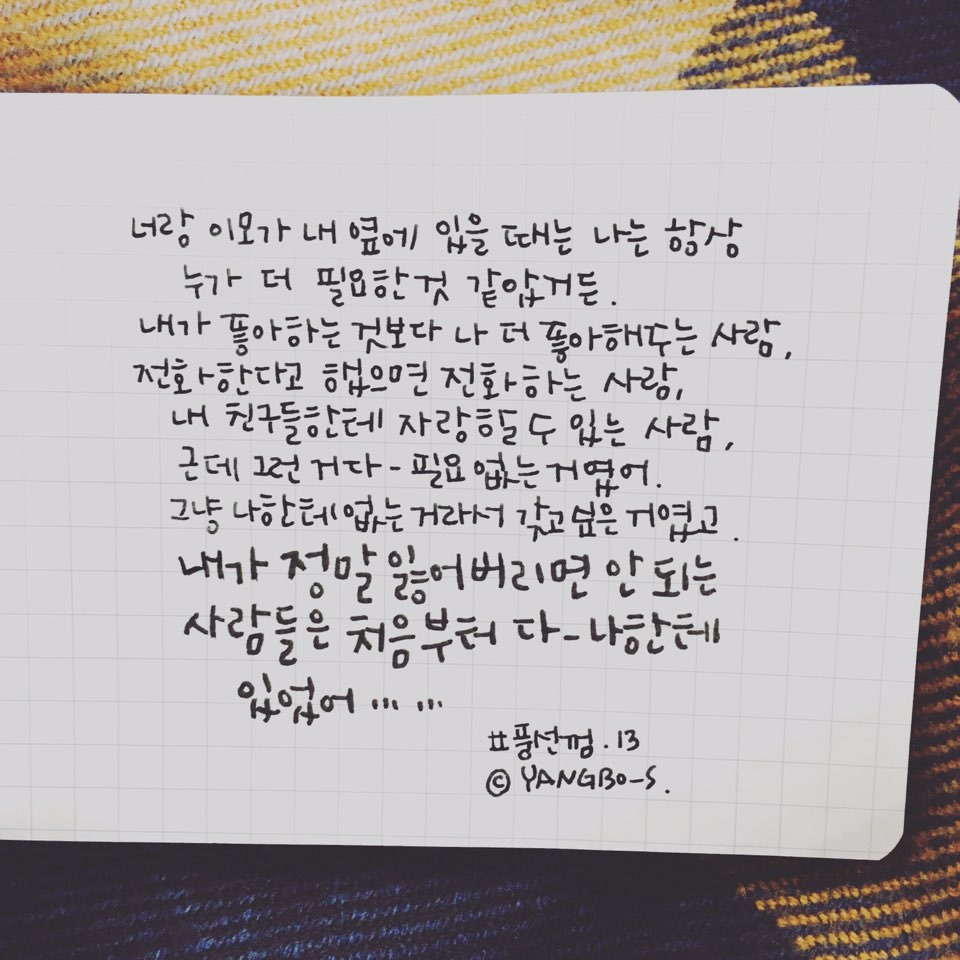 너랑 이모가 내 옆에 있을 때는 나는 항상
누가 더 필요한것 같았거든.
내가 좋아하는 것보다 나 더 좋아해주는 사람,
전화한다고 했으면 전화하는 사람,
내 친구들한테 자랑할 수 있는 사람,
근데 그런 거 다- 필요 없는거였어.
그냥 나한테 없는거라서 갖고싶은 거였고.
내가 정말 잃어버리면 안 되는
사람들은 처음부터 다- 나한테
있었어... ...
#풍선껌.13
© YANGBO-S.